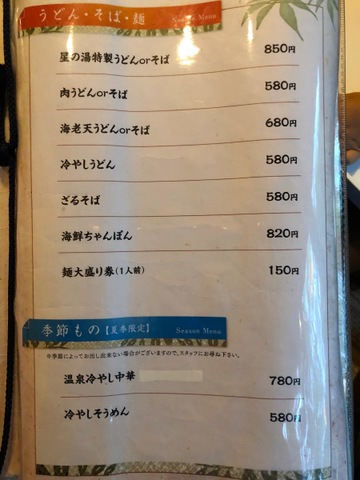 うどん・そば・麺 Season Menu
星の湯特製うどんorそば 850円
肉うどんorそば 580円
海老天うどんorそば 680円
冷やしうどん 580円
ざるそば 580円
海鮮ちゃんぽん 820円
麺大盛り券(1人前) 150円
季節もの【夏季限定】 Season Menu
今季節によってお出し出来ない場合がございますので、スタッフにお尋ね下さい。
温泉冷やし中華 780円
冷やしそうめん 580円